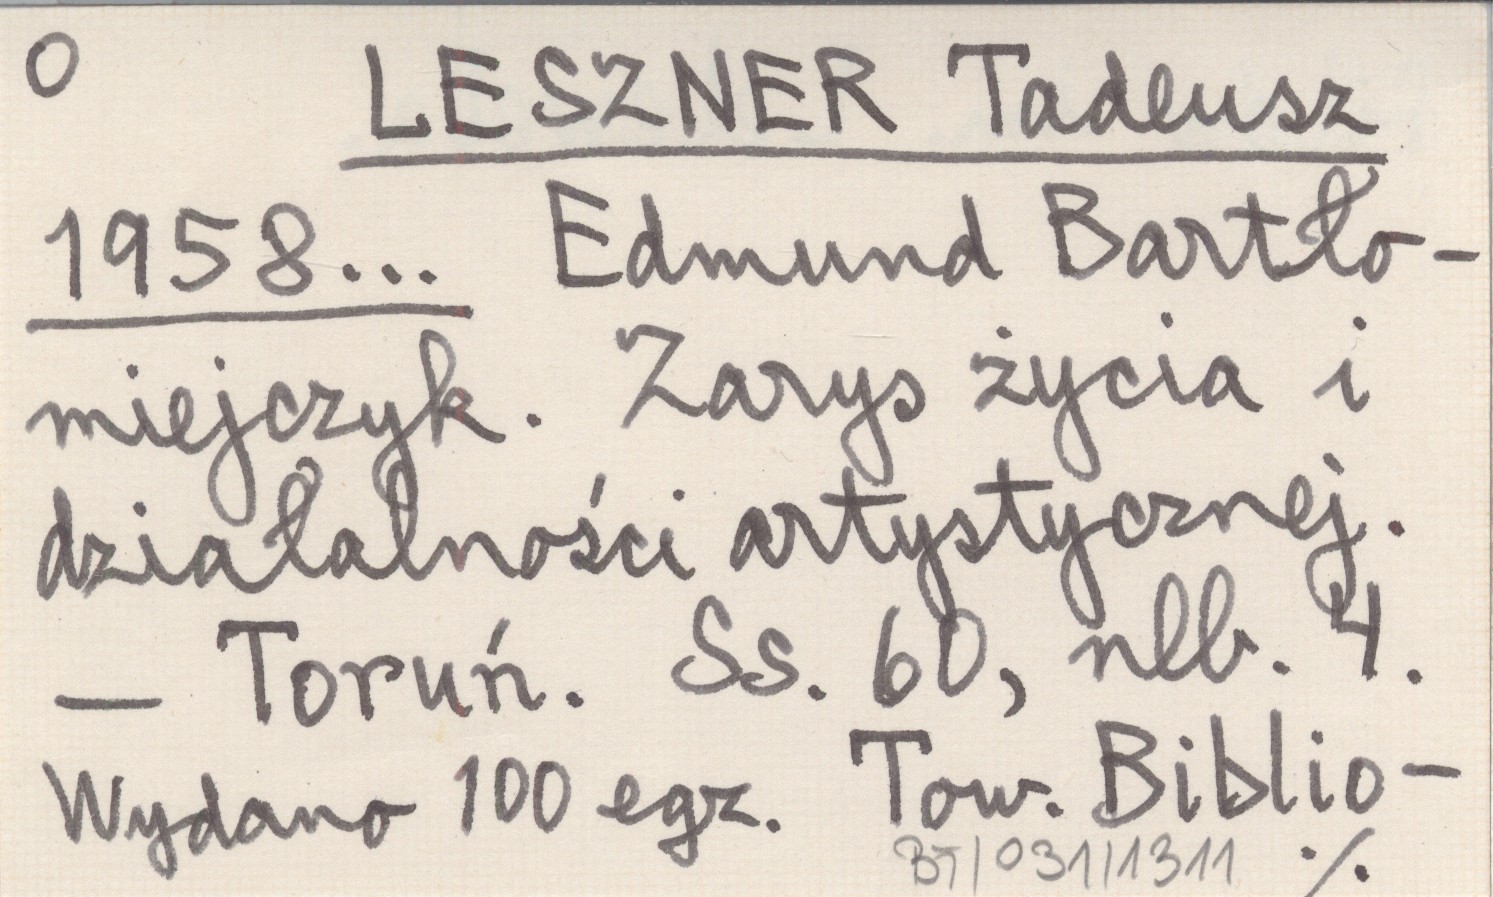 O LESZNER Tadeusz
1958... Edmund Bartło-
miejczyk. Zarys życia i
działalności artystycznej.
— Toruń. Ss. 60, nlb. 4.
Wydano 100 egz. Tow. Biblio-
BT/031/1311 ·/.